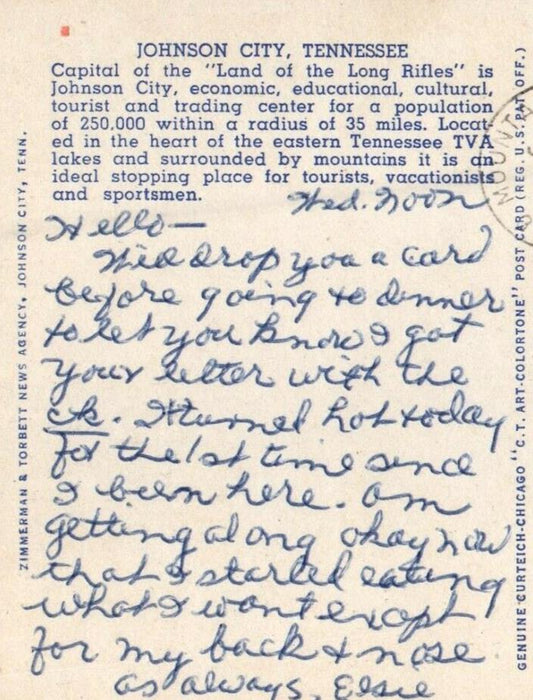 JOHNSON CITY, TENNESSEE
Capital of the "Land of the Long Rifles" is
Johnson City, economic, educational, cultural,
tourist and trading center for a population
of 250,000 within a radius of 35 miles. Locat-
ed in the heart of the eastern Tennessee TVA
lakes and surrounded by mountains it is an
ideal stopping place for tourists, vacationists
and sportsmen.
Wed. Noon
Hello—
drop you a card
before going to dinner
to let you know I got
your letter with the
ck. It turned hot today
for the 1st time since
I been here. am
getting along okay now
that I started eating
what I want except
for my back & nose
as always, Elsie
ZIMMERMAN & TORBETT NEWS AGENCY, JOHNSON CITY, TENN.
GENUINE CURTEICH-CHICAGO "C.T. ART-COLORTONE" POST CARD (REG. U.S. PAT. OFF.)